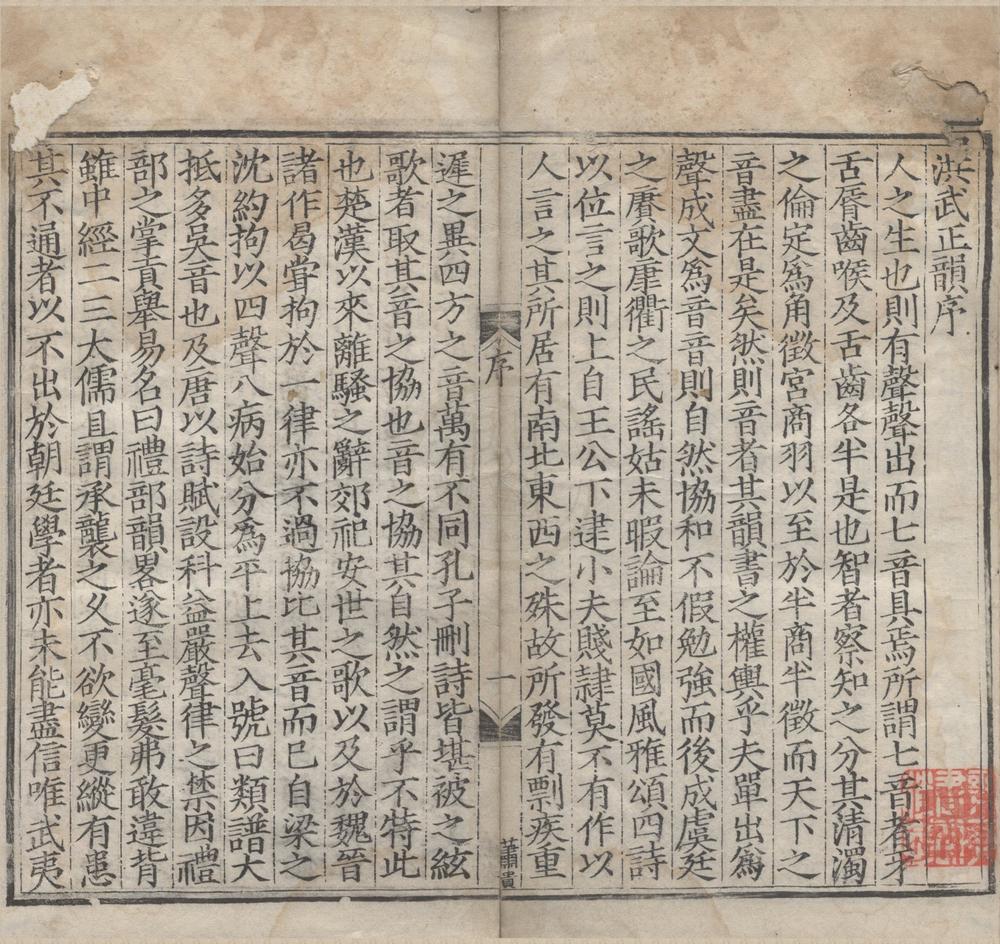 洪武正韻序
人之生也則有聲聲出而七音具焉所謂七音者牙
舌脣齒喉及舌齒各半是也智者察知之分其清濁
之倫定爲角徵宮商羽以至於半商半徵而天下之
音盡在是矣然則音者其韻書之權輿乎夫單出爲
聲成文爲音音則自然協和不假勉強而後成虞廷
之賡歌康衢之民謠姑未暇論至如國風雅頌四詩
以位言之則上自王公下逮小夫賤隸莫不有作以
人言之其所居有南北東西之殊故所發有剽疾重
序
一
蕭貴
遲之異四方之音萬有不同孔子刪詩皆堪被之絃
歌者取其音之協也音之協其自然之謂乎不特此
也楚漢以來離騷之辭郊祀安世之歌以及於魏晉
諸作曷嘗拘於一律亦不過協比其音而已自梁之
沈約拘以四聲八病始分爲平上去入號曰類譜大
抵多吳音也及唐以詩賦設科益嚴聲律之禁因禮
部之掌貢舉易名曰禮部韻畧遂至毫髮弗敢違背
雖中經二三大儒且謂承襲之久不欲變更縱有患
其不通者以不出於朝廷學者亦未能盡信唯武夷